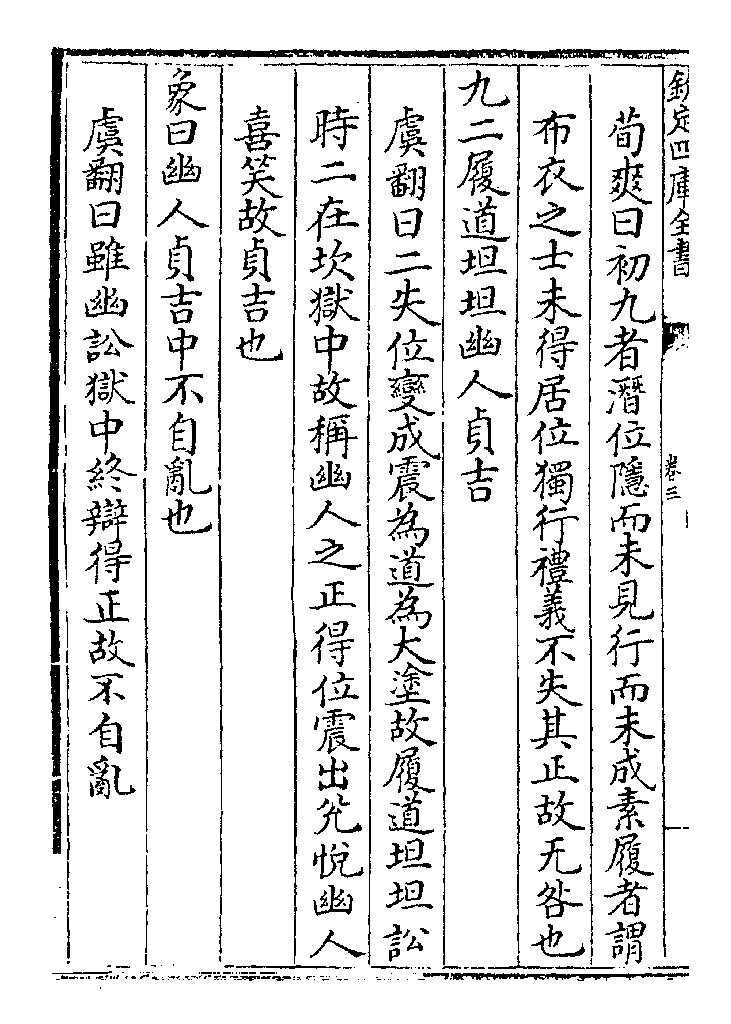 欽定四庫全書
卷三
荀爽曰初九者潛位隱而未見行而未成素履者謂
布衣之士未得居位獨行禮義不失其正故无咎也
九二履道坦坦幽人貞吉
虞翻曰二失位變成震為道為大塗故履道坦坦訟
時二在坎獄中故稱幽人之正得位震出兊悅幽人
喜笑故貞吉也
象曰幽人貞吉中不自亂也
虞翻曰雖幽訟獄中終辯得正故不自亂